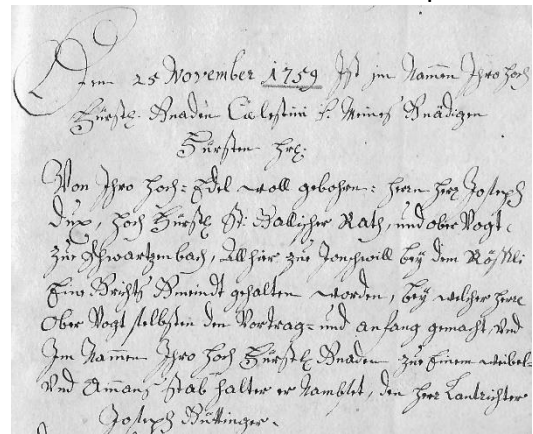 Dem 25 November 1759 Ist im Nammen Ihro Hoch
Fürstl: Gnaden Cœlestini S. Meines Gnädigen
Fürsten Hrr:
Von Ihro Hoch: Edel woll gebohren: Herrn Herr Joseph
Dux, Hoch Fürstl St: Gallischer Rath, und ober Vogt
zue Schwartzenbach, Allhier zue Jonschwill bey dem Rößli
Eine Grichts Gmeindt gehalten worden, bey welcher Herr
Ober Vogt selbsten den Vortrag= und anfang gemacht, und
Im Nammen Ihro Hoch Fürstl Gnaden zue Einem weibel=
und Amans Stab halter er Nambset, den Herr Lantrichter
Joseph Büttinger.